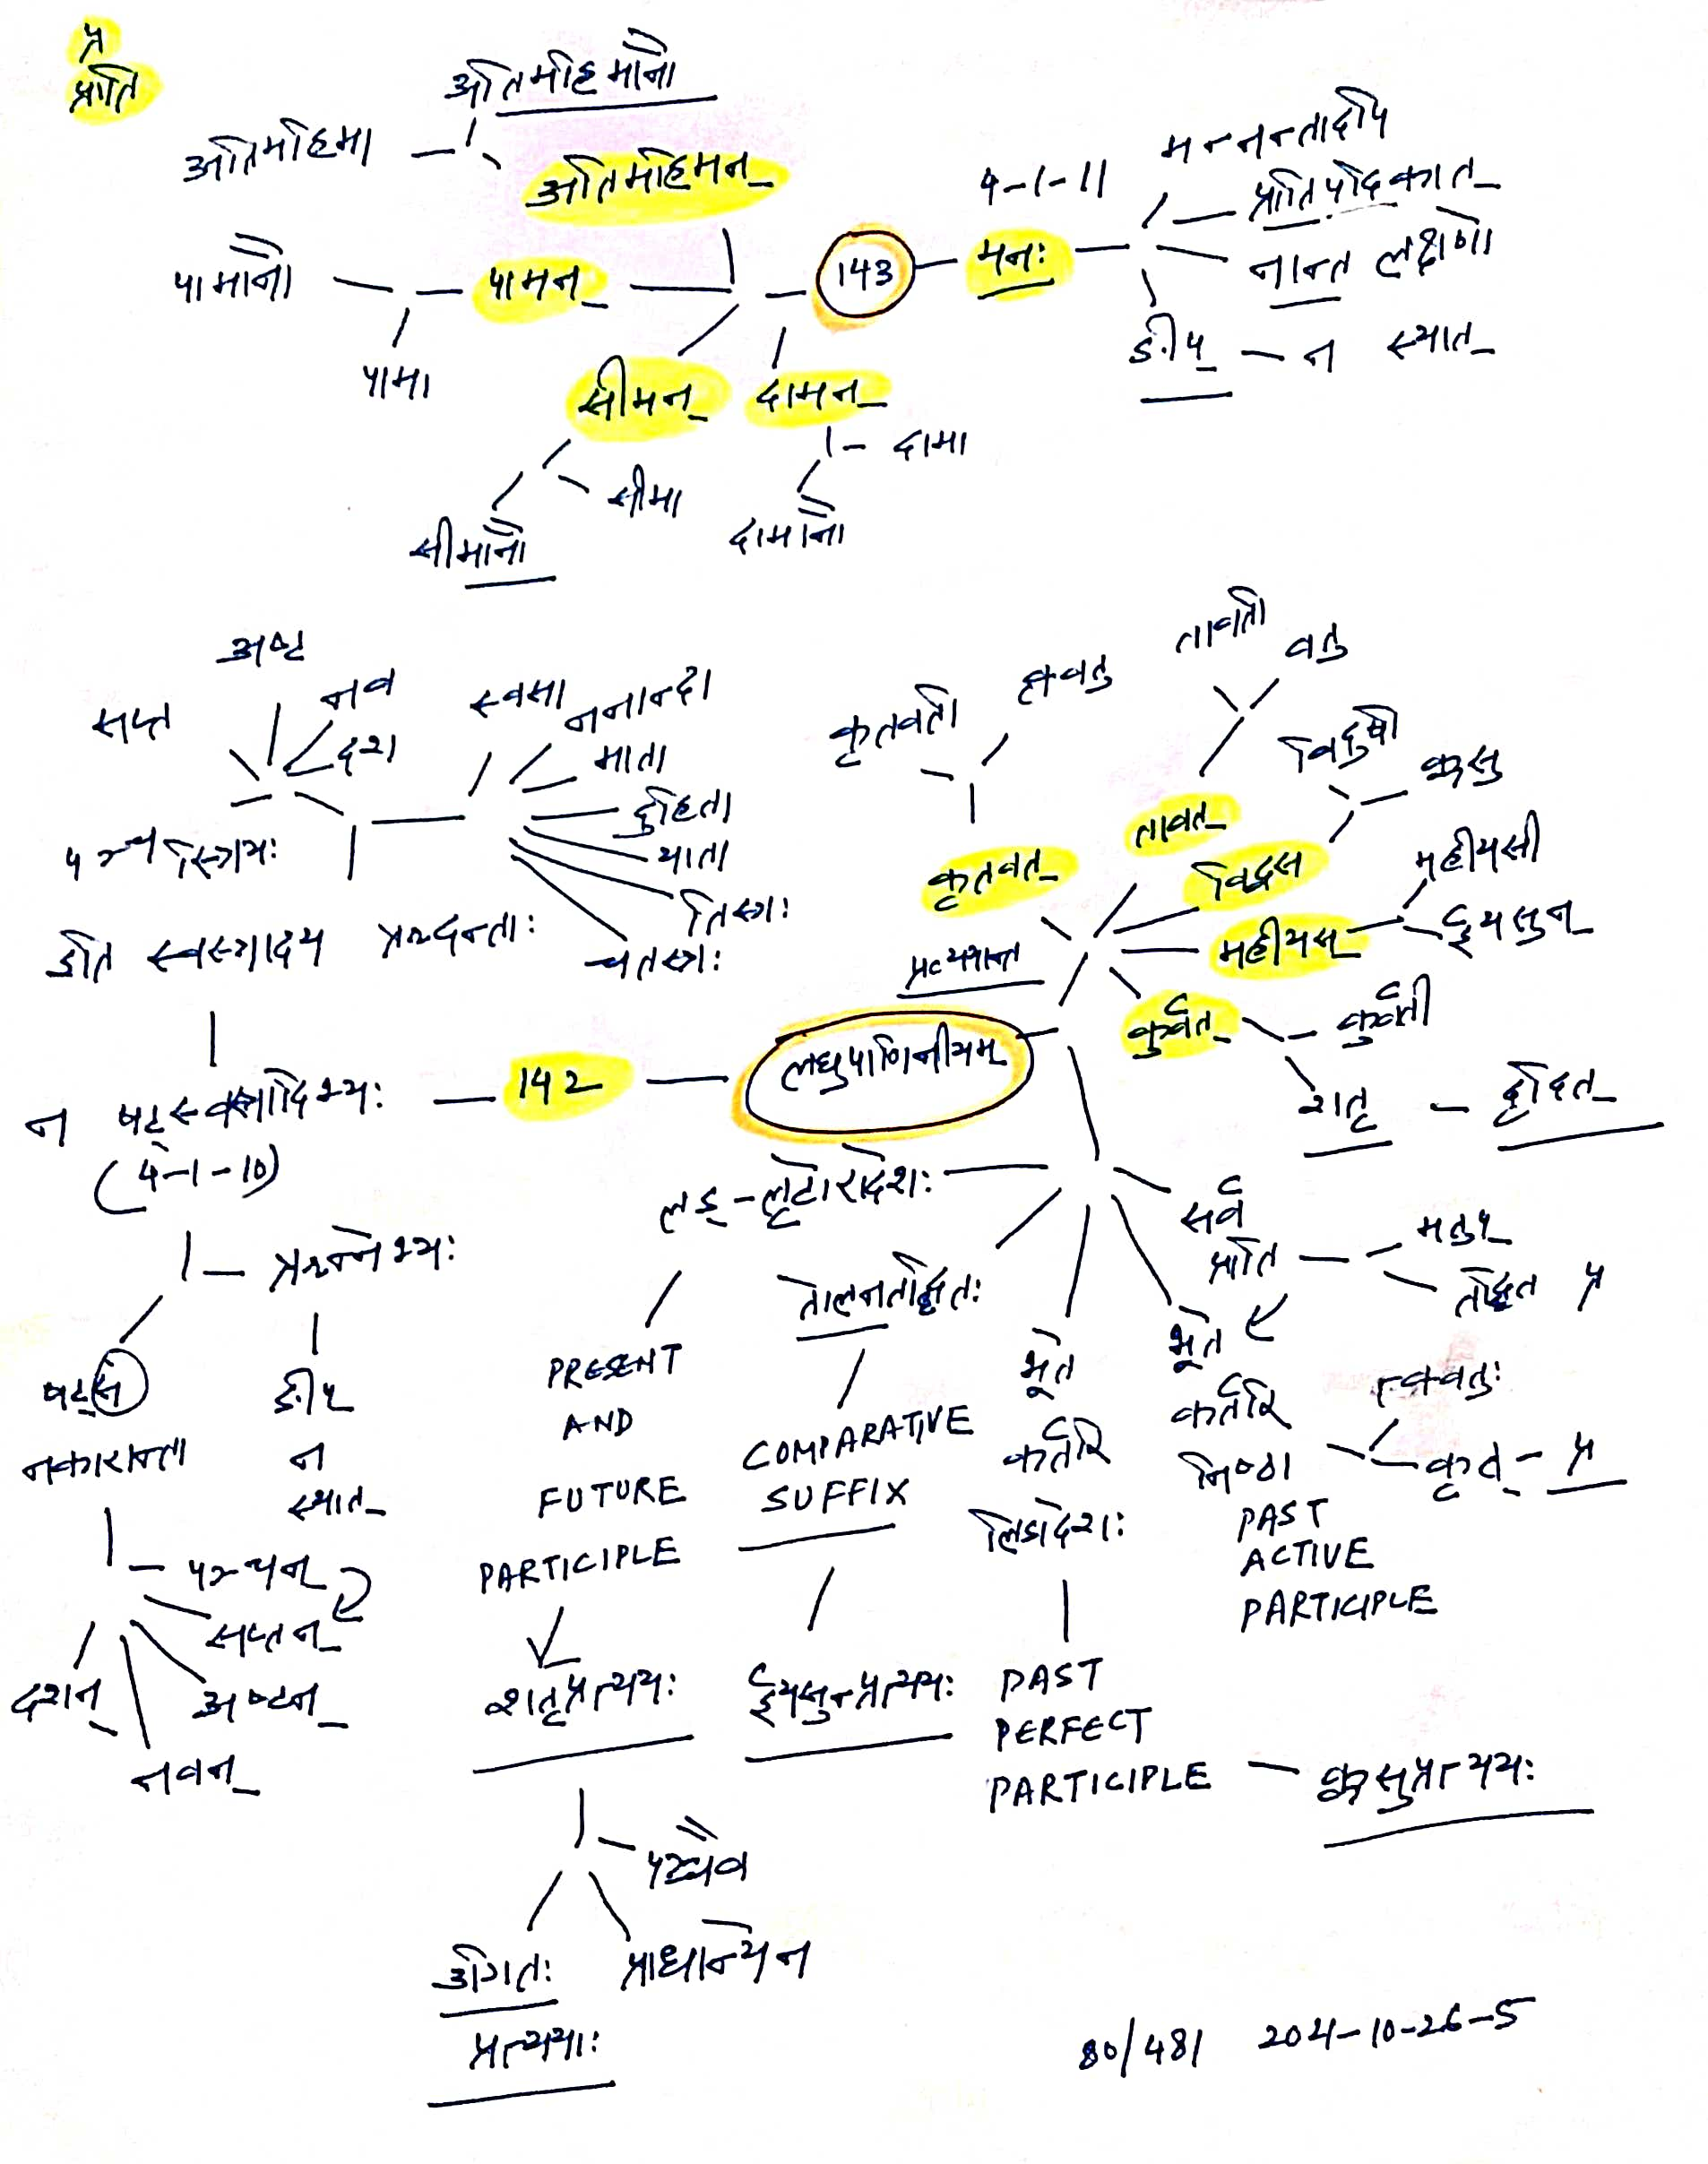 प्र
प्राति
अतिमहिमानौ
अतिमहिमा
अतिमहिमन्
पामानौ
पामन्
पामा
143
मनः
4-1-11
मन्नन्तादपि
प्रातिपदिकात्
नान्त लक्षणो
ङीप् – न स्यात्
सीमन्
दामन्
दामा
सीमा
सीमानौ
दामानौ
अष्ट
सप्त
नव
दश
पञ्च
तिस्रः
स्वसा
ननान्दा
माता
दुहिता
याता
तिस्रः
चतस्रः
इति स्वस्रादय ऋदन्ताः
न षट्स्वस्रादिभ्यः
(4-1-10)
142
लघुपाणिनीयम्
ऋन्नेभ्यः
ङीप्
न
स्यात्
षट्सं
नकारान्ता
पञ्चन्
सप्तन्
अष्टन्
नवन्
दशन्
कृतवती
क्तवतु
कृतवत्
तावती
वतु
तावत्
विदुषी
क्वसु
विद्वस्
महीयसी
ईयसुन्
महीयस्
प्रत्ययान्त
कुर्वत्
कुर्वती
शतृ
लृट्शोरादेशः
तोलनतद्धितः
PRESENT
AND
FUTURE
PARTICIPLE
शतृप्रत्ययः
COMPARATIVE
SUFFIX
ईयसुन्प्रत्ययः
भूत
कर्तरि
लिडादेशः
PAST
PERFECT
PARTICIPLE – क्वसुप्रत्ययः
सर्व
प्राति
मतुप्
तद्धित प्र
भूत
कर्तरि
निष्ठा
क्तवतुः
कृत् – प्र
PAST
ACTIVE
PARTICIPLE
प्राधान्येन
उगितः
प्रत्ययाः
80/481 204-10-26-5